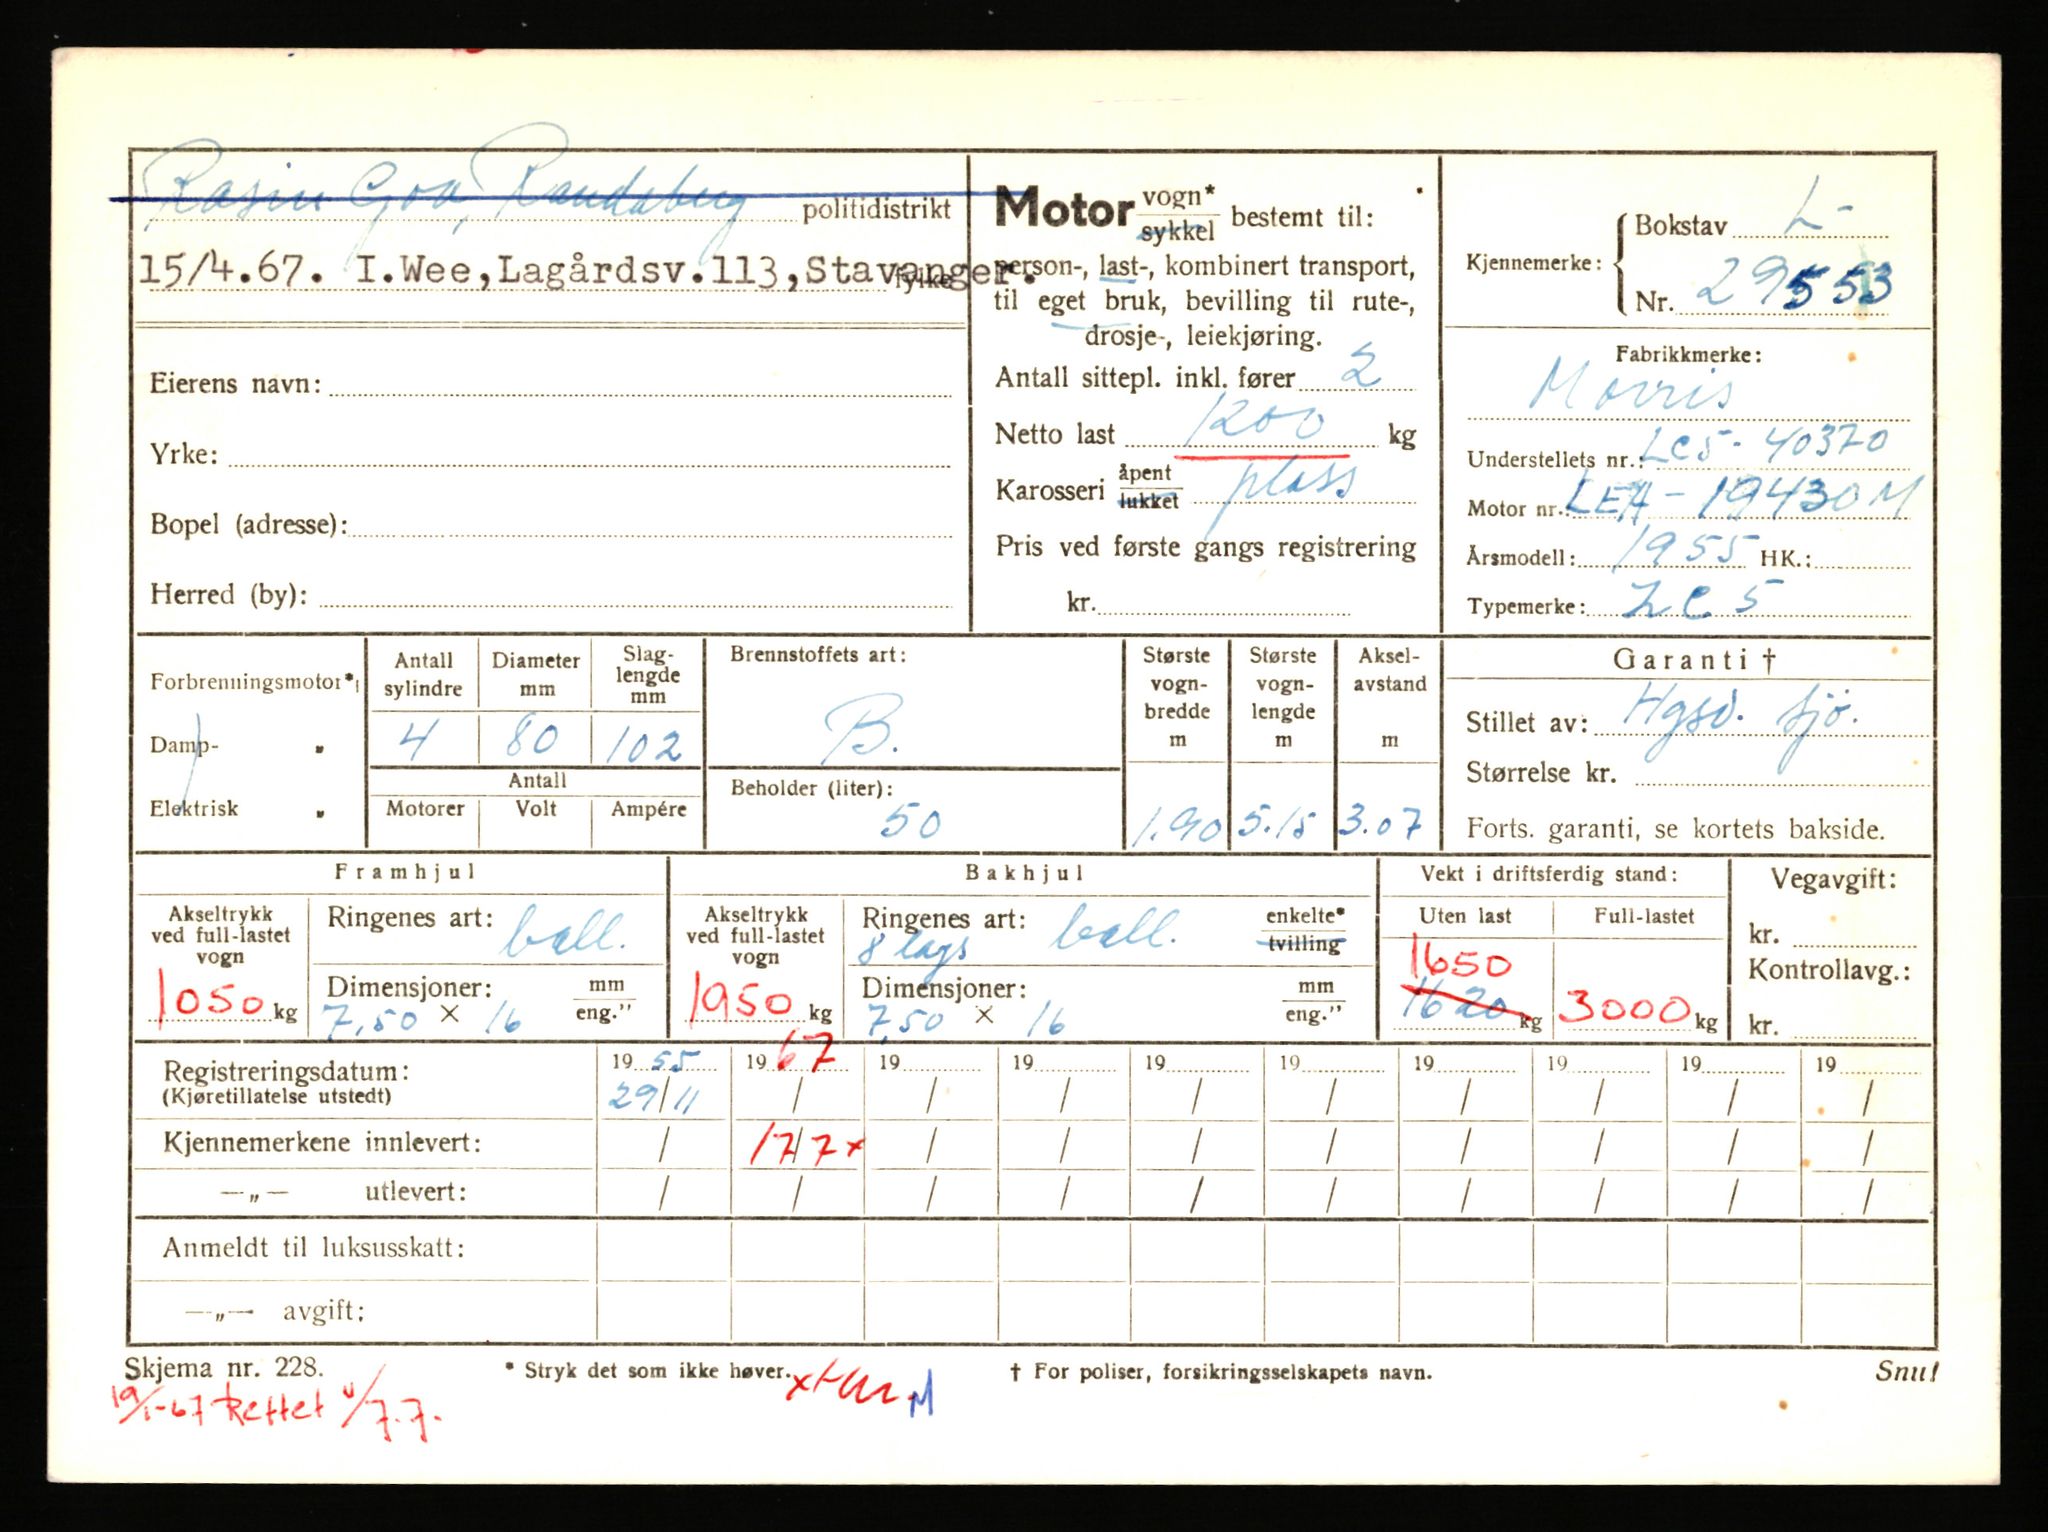 Rasin Goa, Randaberg politidistrikt
15/4.67. I.Wee, Lagårdsv.113, Stavanger. fylke
Eierens navn:
Yrke:
Bopel (adresse):
Herred (by):
Motor vogn* sykkel bestemt til:
person-, last-, kombinert transport,
til eget bruk, bevilling til rute-,
drosje-, leiekjøring.
Antall sittepl. inkl. fører 2
Netto last 1200 kg
Karosseri åpent lukket plass
Pris ved første gangs registrering
kr.
Kjennemerke: Bokstav L-
Nr. 29553
Fabrikkmerke:
Morris
Understellets nr.: LC5-40370
Motor nr.: LEA-19430M
Årsmodell: 1955 HK.:
Typemerke: LC5
Forbrenningsmotor*
Damp- "
Elektrisk "
Antall sylindre 4
Diameter mm 80
Slaglengde mm 102
Antall
Motorer Volt Ampére
Brennstoffets art:
B.
Beholder (liter):
50
Største vogn-bredde m 1.90
Største vogn-lengde m 5.15
Aksel-avstand m 3.07
Garanti †
Stillet av: Hgsd. Sjö.
Størrelse kr.
Forts. garanti, se kortets bakside.
Framhjul
Akseltrykk ved full-lastet vogn 1050 kg
Ringenes art: ball.
Dimensjoner: mm eng."
7,50 × 16
Bakhjul
Akseltrykk ved full-lastet vogn 1950 kg
Ringenes art: 8 lags ball. enkelte* tvilling
Dimensjoner: mm eng."
7,50 × 16
Vekt i driftsferdig stand:
Uten last 1650 1620 kg
Full-lastet 3000 kg
Vegavgift:
kr.
Kontrollavg.:
kr.
Registreringsdatum: 19 55 19 67 19 19 19 19 19 19 19 19
(Kjøretillatelse utstedt) 29/11 / / / / / / / / /
Kjennemerkene innlevert: / 17/7 x / / / / / / / /
—„— utlevert: / / / / / / / / / /
Anmeldt til luksusskatt:
—„— avgift:
Skjema nr. 228.
* Stryk det som ikke høver.
† For poliser, forsikringsselskapets navn.
Snu!
19/1-67 Rettet v/7.7.
M